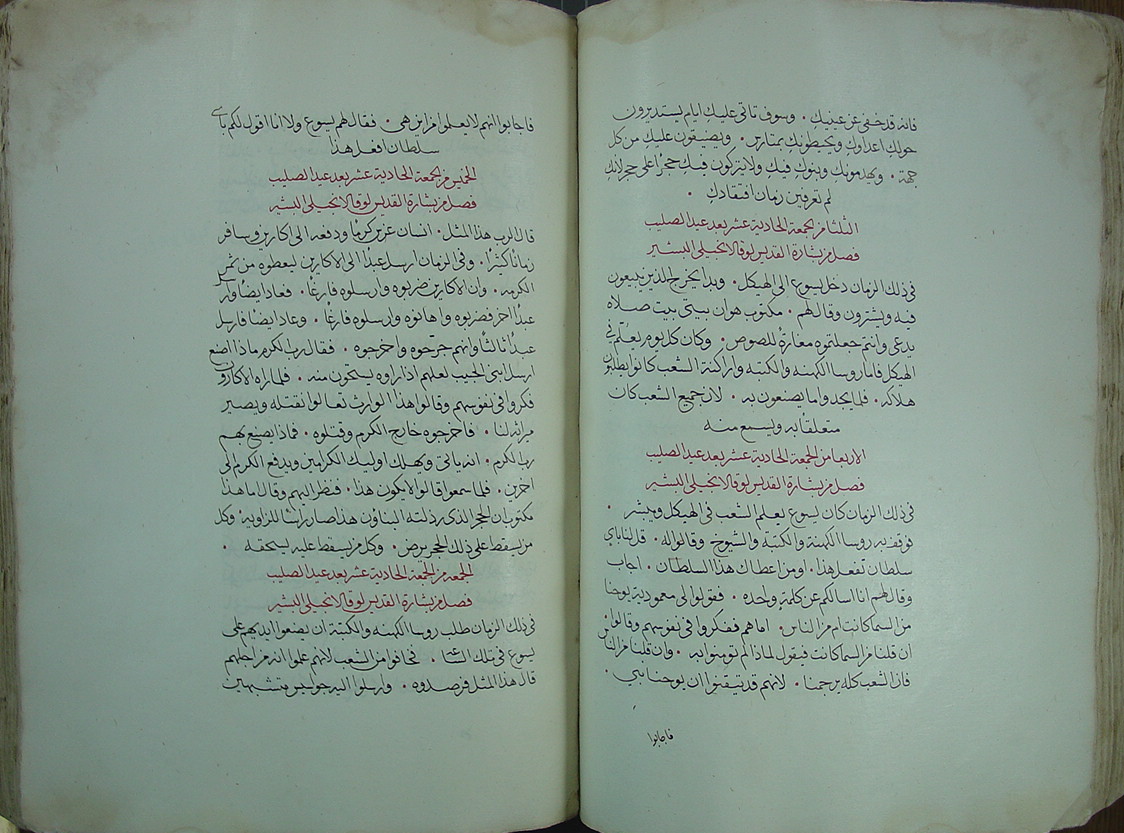 فانه قد خفي عن عينيك · وسوف تاتي عليك ايام يستديرون
حولك اعداوك ويحيطونك بمتارس · ويضيقون عليك من كل
جهة · ويهدمونك وبنوك فيك ولا يتركون فيك حجرًا على حجر لانك
لم تعرفين زمان افتقادك ·
الثلثا من الجمعة الحادية عشر بعد عيد الصليب
فصل من بشارة القديس لوقا الانجيلي البشير
في ذلك الزمان دخل يسوع الى الهيكل · وبدا يخرج الذين يبيعون
فيه ويشترون وقال لهم · مكتوب هو ان بيتي بيت صلاه
يدعى وانتم جعلتموه مغارة للصوص · وكان كل يوم يعلّم في
الهيكل فاما روسا الكهنه والكتبه واراكنة الشعب كانوا يطلبون
هلاكه · فلم يجدوا ما يصنعون به · لان جميع الشعب كان
متعلقا به ويسمع منه
الاربعا من الجمعة الحادية عشر بعد عيد الصليب
فصل من بشارة القديس لوقا الانجيلي البشير
في ذلك الزمان كان يسوع يعلم الشعب في الهيكل ويبشر ·
فوقف به روسا الكهنة والكتبة والشيوخ وقالوا له · قل لنا باي
سلطان تفعل هذا · او من اعطاك هذا السلطان · اجاب
وقال لهم انا اسالكم عن كلمة واحده · فقولوا لي معمودية يوحنا
من السما كانت ام من الناس · اما هم ففكروا في نفوسهم وقالوا ·
ان قلنا من السما كانت فيقول لماذا لم تومنوا به · وان قلنا من الناس
فان الشعب كله يرجمنا · لانهم قد تيقنوا ان يوحنا نبي ·
فاجابوا
فاجابوا انهم لا يعلموا من اين هي · فقال لهم يسوع ولا انا اقول لكم باي
سلطان افعل هذا
الخميس من الجمعة الحادية عشر بعد عيد الصليب
فصل من بشارة القديس لوقا الانجيلي البشير
قال الرب هذا المثل · انسان غرس كرمًا ودفعه الى اكارين وسافر
زمانًا كثيرًا · وفي الزمان ارسل عبدًا الى الاكارين ليعطوه من ثمر
الكرمه · وان الاكارين ضربوه وارسلوه فارغًا · فعاد ايضًا وارسل
عبدًا اخر فضربوه واهانوه وارسلوه فارغًا · وعاد ايضًا فارسل
عبدًا ثالثًا وانهم جرّحوه واخرجوه · فقال رب الكرم ماذا اصنع
ارسل ابني الحبيب لعلهم اذا راوه يستحون منه · فلما راه الاكارون
فكروا في نفوسهم وقالوا هذا الوارث تعالوا نقتله ويصير
ميراثه لنا · فاخرجوه خارج الكرم وقتلوه · فماذا يصنع بهم
رب الكرم · انه ياتي ويهلك اوليك الكرامين ويدفع الكرم الى
اخرين · فلما سمعوا قالوا لا يكون هذا · فنظر اليهم وقال اما هذا
مكتوب ان الحجر الذي رذلته البناوون هذا صار راسًا للزاوية · وكل
من يسقط على ذلك الحجر يرض · وكل من يسقط عليه يسحقه ·
الجمعه من الجمعة الحادية عشر بعد عيد الصليب
فصل من بشارة القديس لوقا الانجيلي البشير
في ذلك الزمان طلب روسا الكهنه والكتبة ان يضعوا ايديهم على
يسوع في تلك الساعة · فخافوا من الشعب لانهم علموا انه من اجلهم
قال هذا المثل فرصدوه · وارسلوا اليه جواسيس متشبهين